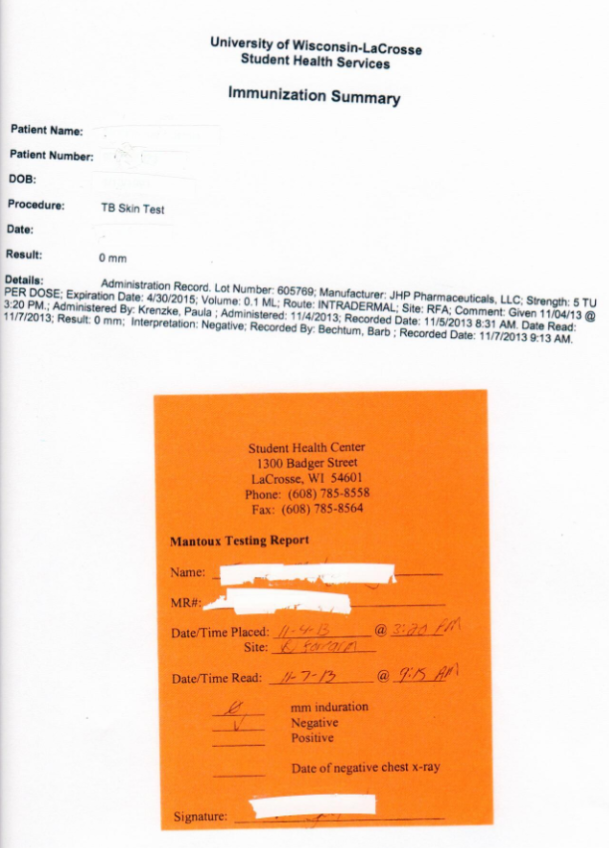 University of Wisconsin-LaCrosse
Student Health Services
Immunization Summary
Patient Name:
Patient Number:
DOB:
Procedure: TB Skin Test
Date:
Result: 0 mm
Details: Administration Record. Lot Number: 605769; Manufacturer: JHP Pharmaceuticals, LLC; Strength: 5 TU
PER DOSE; Expiration Date: 4/30/2015; Volume: 0.1 ML; Route: INTRADERMAL; Site: RFA; Comment: Given 11/04/13 @
3:20 PM.; Administered By: Krenzke, Paula ; Administered: 11/4/2013; Recorded Date: 11/5/2013 8:31 AM. Date Read:
11/7/2013; Result: 0 mm; Interpretation: Negative; Recorded By: Bechtum, Barb ; Recorded Date: 11/7/2013 9:13 AM.
Student Health Center
1300 Badger Street
LaCrosse, WI 54601
Phone: (608) 785-8558
Fax: (608) 785-8564
Mantoux Testing Report
Name:
MR#:
Date/Time Placed: 11-4-13 @ 3:20 PM
Site: R forearm
Date/Time Read: 11-7-13 @ 9:15 AM
0 mm induration
✓ Negative
Positive
Date of negative chest x-ray
Signature: